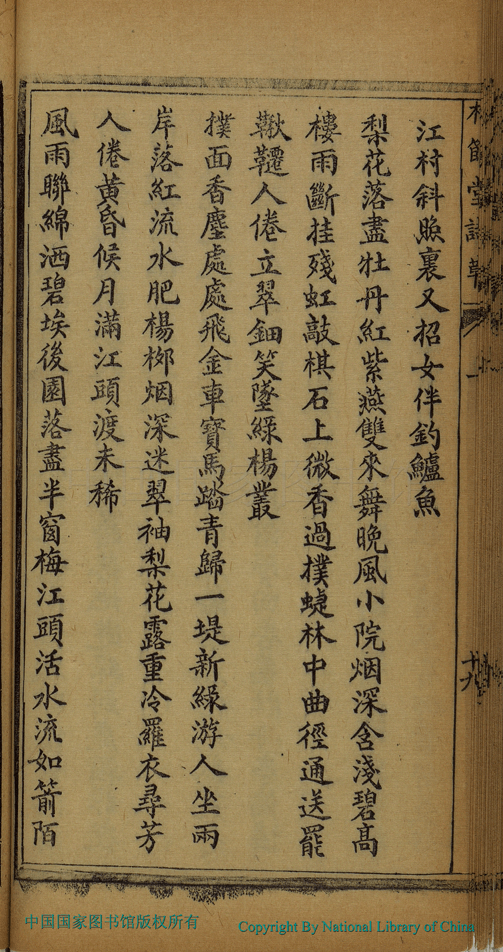 江村斜照裏又招女伴釣鱸魚
梨花落盡牡丹紅紫燕雙來舞晚風小院烟深含淺碧髙
樓雨斷挂殘虹敲棋石上微香過撲蜨林中曲徑通送罷
鞦韆人倦立翠鈿笑墜綠楊叢
撲面香塵處處飛金車寶馬踏青歸一堤新綠游人坐兩
岸落紅流水肥楊柳烟深迷翠袖梨花露重冷羅衣尋芳
人倦黃昏候月滿江頭渡未稀
風雨聯綿洒碧埃後園落盡半窗梅江頭活水流如箭陌
中国国家图书馆版权所有
Copyright By National Library of China